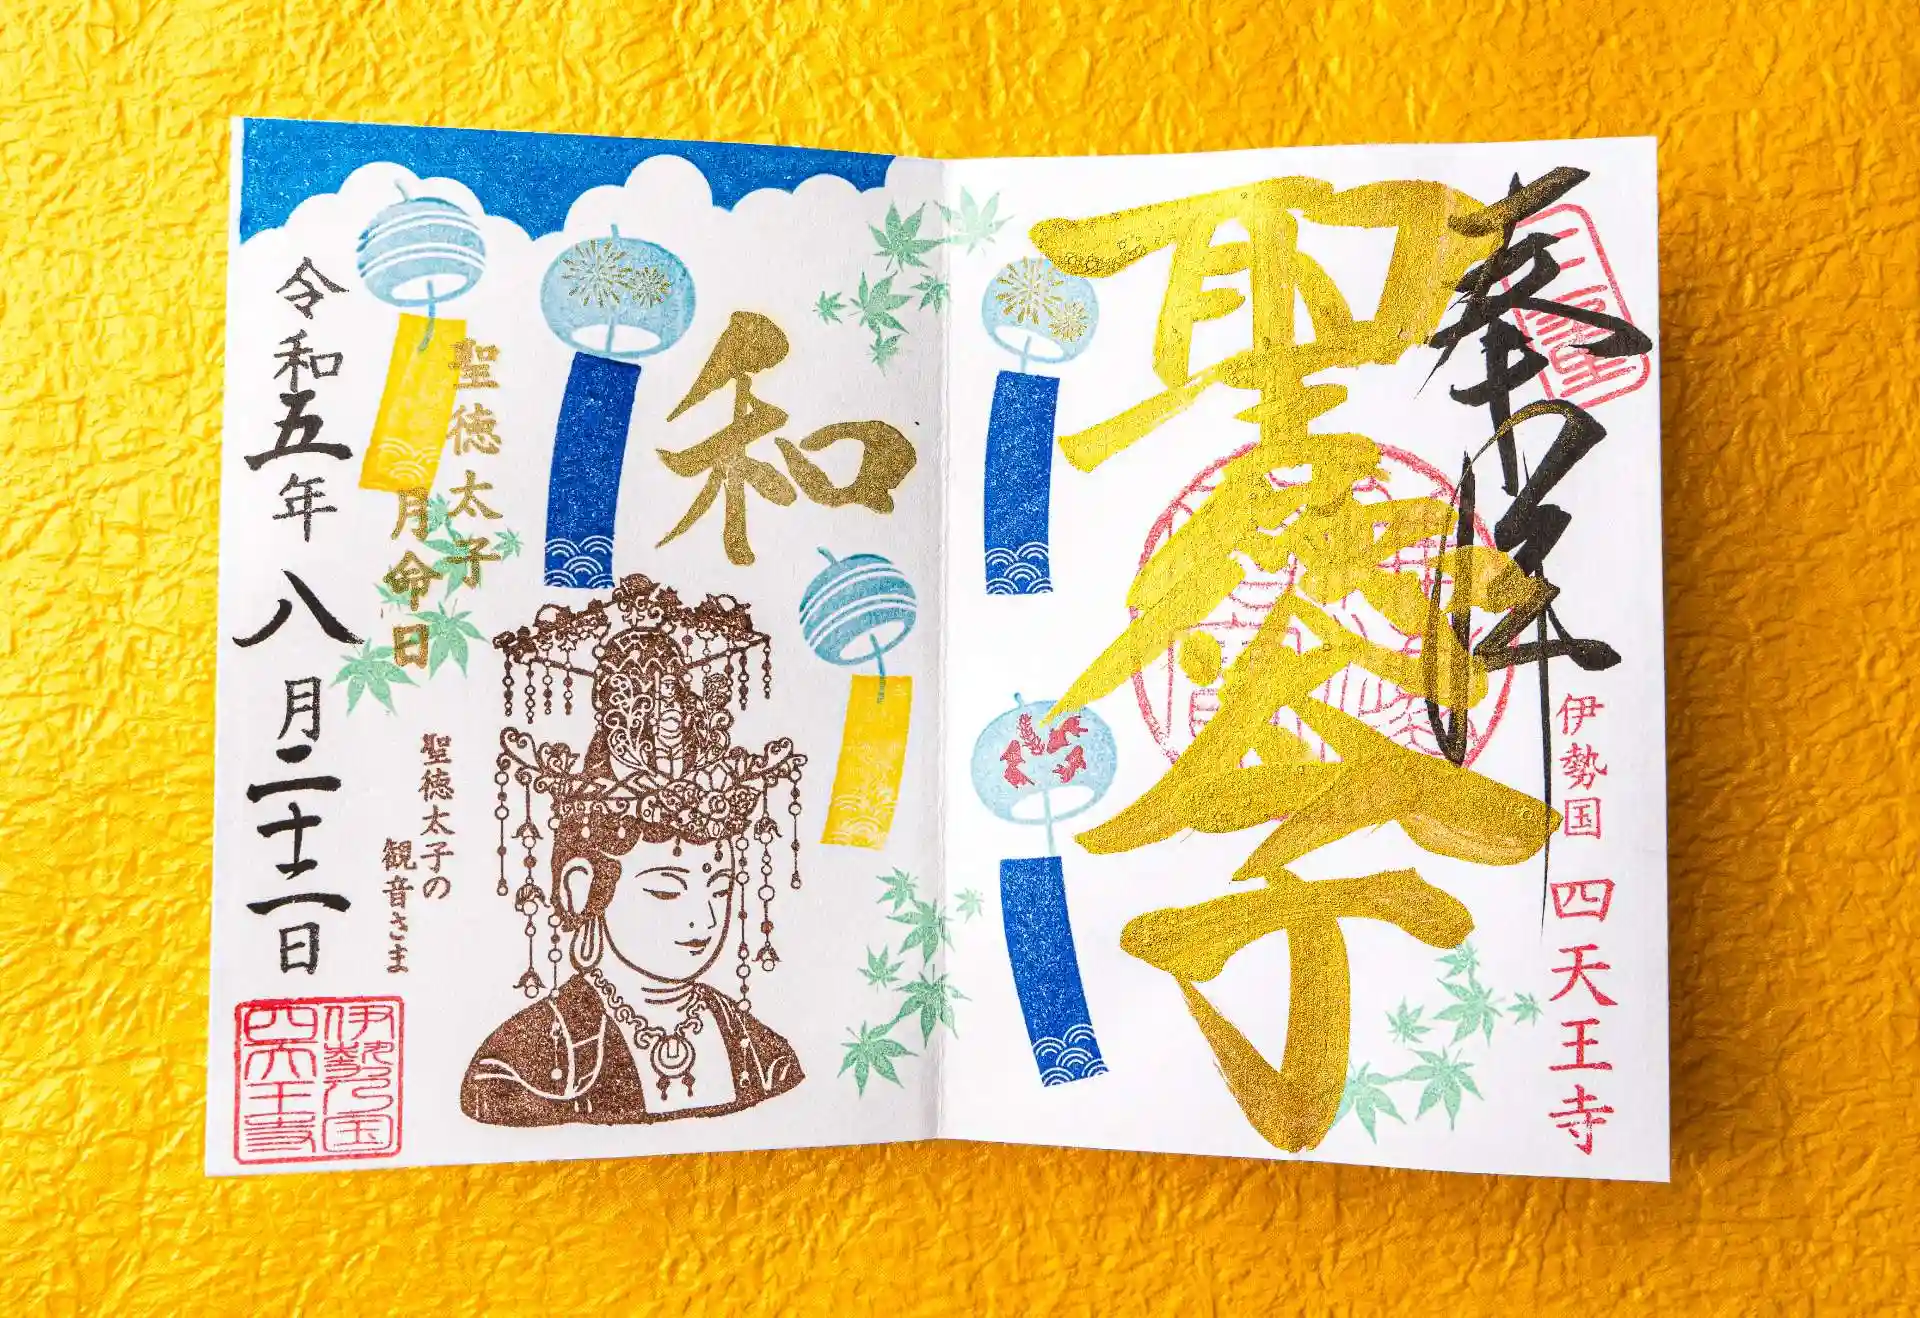 奉拝
伊勢国 四天王寺
聖徳太子
和
聖徳太子
月命日
聖徳太子の
観音さま
令和五年八月二十二日
伊勢国
四天王寺